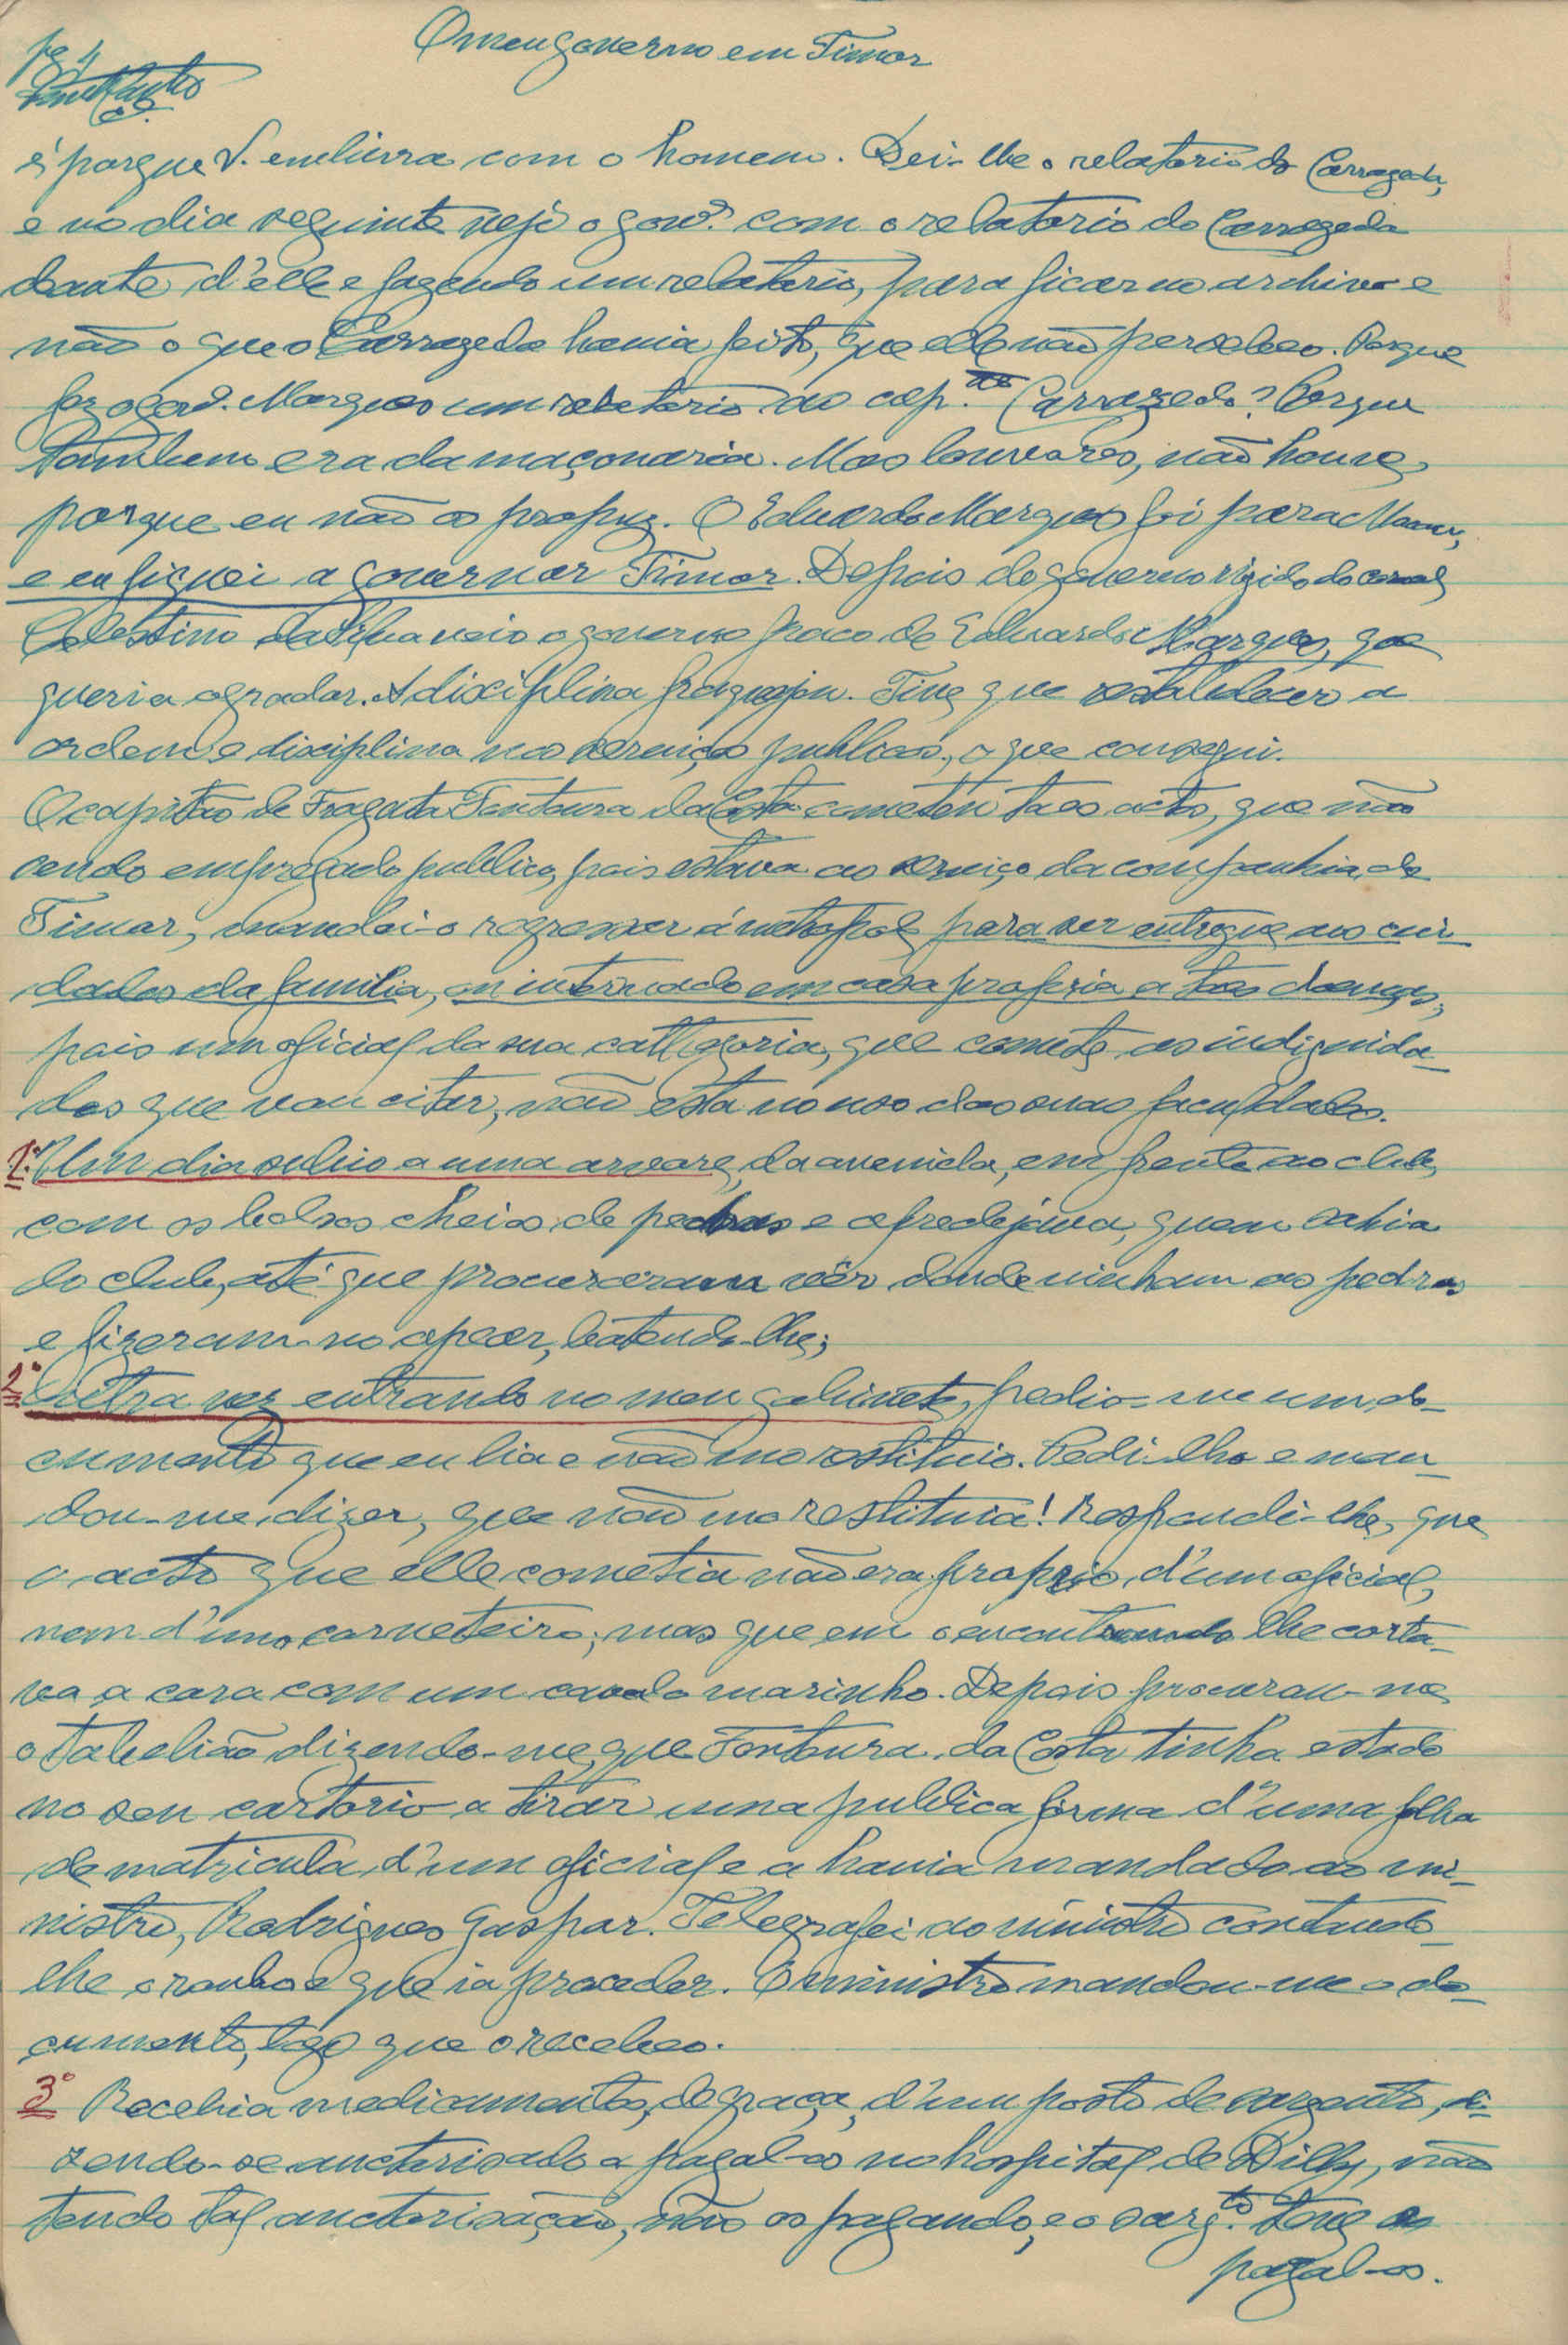 O meu governo em Timor
pg 4
é porque V. embirra com o homem. Dei-lhe o relatorio do Carrazeda,
e no dia seguinte vejo o gov.or com o relatorio do Carrazeda
deante d'elle e fazendo um relatorio, para ficar no archivo e
não o que o Carrazeda havia feito, que elle não percebeo. Porque
fez o gov.or Marques um relatorio ao cap.am Carrazeda? Porque
tambem era da maçonaria. Mas louvores, não houve,
porque eu não os propuz. O Eduardo Marques foi para Macau,
e eu fiquei a governar Timor. Depois do governo rigido do coronel
Celestino da Silva veio o governo fraco de Eduardo Marques, que
queria agradar. A disciplina fraquejou. Tive que restabelecer a
ordem e disciplina nos serviços publicos, o que consegui.
O capitão de Fragata Fontoura da Costa cometeu taes actos, que não
sendo empregado publico, pois estava ao serviço da companhia de
Timor, mandei-o regressar á metropole para ser entregue aos cui-
dados da familia, ou internado em casa propria a taes doenças,
pois um oficial da sua cathegoria, que comete as indignida-
des que vou citar, não está no uso das suas faculdades.
1.º Um dia subio a uma arvore, da avenida, em frente ao club,
com os bolsos cheios de pedras e apredejava, quem sahia
do club, até que procuraram vêr donde vinham as pedras
e fizeram-no apear, batendo-lhe;
2.º Outra vez entrando no meu gabinete, pedio-me um do-
cumento que eu lia e não mo restituio. Pedi-lho e man-
dou-me dizer, que não mo restituia! Respondi-lhe, que
o acto que elle cometia não era proprio, d'um oficial,
nem d'um corneteiro; mas que em o encontrando lhe corta-
va a cara com um cavalo marinho. Depois procurou-me
o Tabelião dizendo-me, que Fontoura da Costa tinha estado
no seu cartorio a tirar uma publica forma d'uma folha
de matricula, d'um oficial e a havia mandado ao mi-
nistro, Rodrigues Gaspar. Telegrafei ao ministro contando-
lhe o roubo e que ia proceder. O ministro mandou-me o do-
cumento, logo que o recebeo.
3.º Recebia medicamentos, de graça, d'um posto de sargento, di-
zendo-se auctorisado a pagal-os no hospital de Dilly, não
tendo tal auctorisação, não os pagando, e o sarg.to teve de
pagal-os.